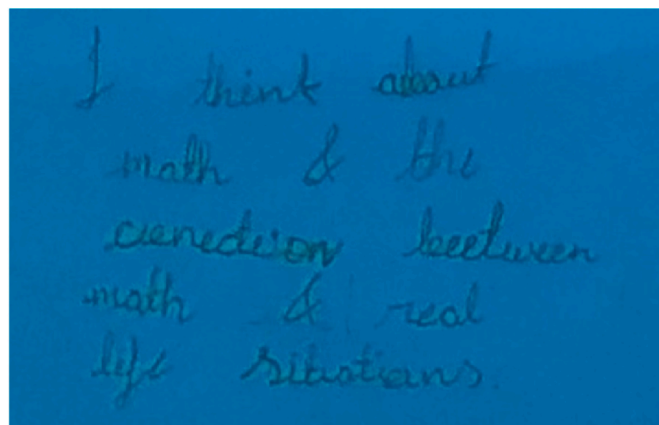 I think about
math & the
conection beetween
math & real
life sitiations.